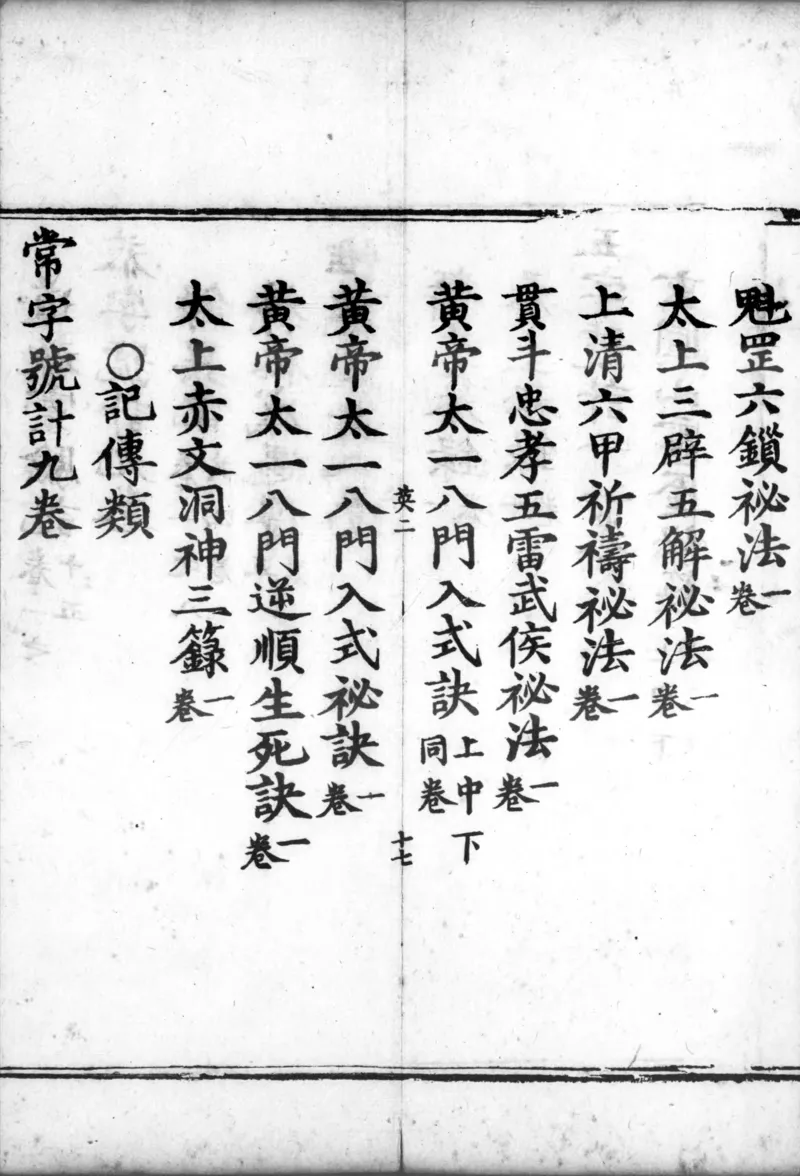 魁罡六鎖祕法一卷
太上三辟五解祕法一卷
上清六甲祈禱祕法一卷
貫斗忠孝五雷武侯祕法一卷
黄帝太一八門入式訣上中下同卷
英二 十七
黄帝太一八門入式祕訣一卷
黄帝太一八門逆順生死訣一卷
太上赤文洞神三籙一卷
○記傳類
常字號計九卷